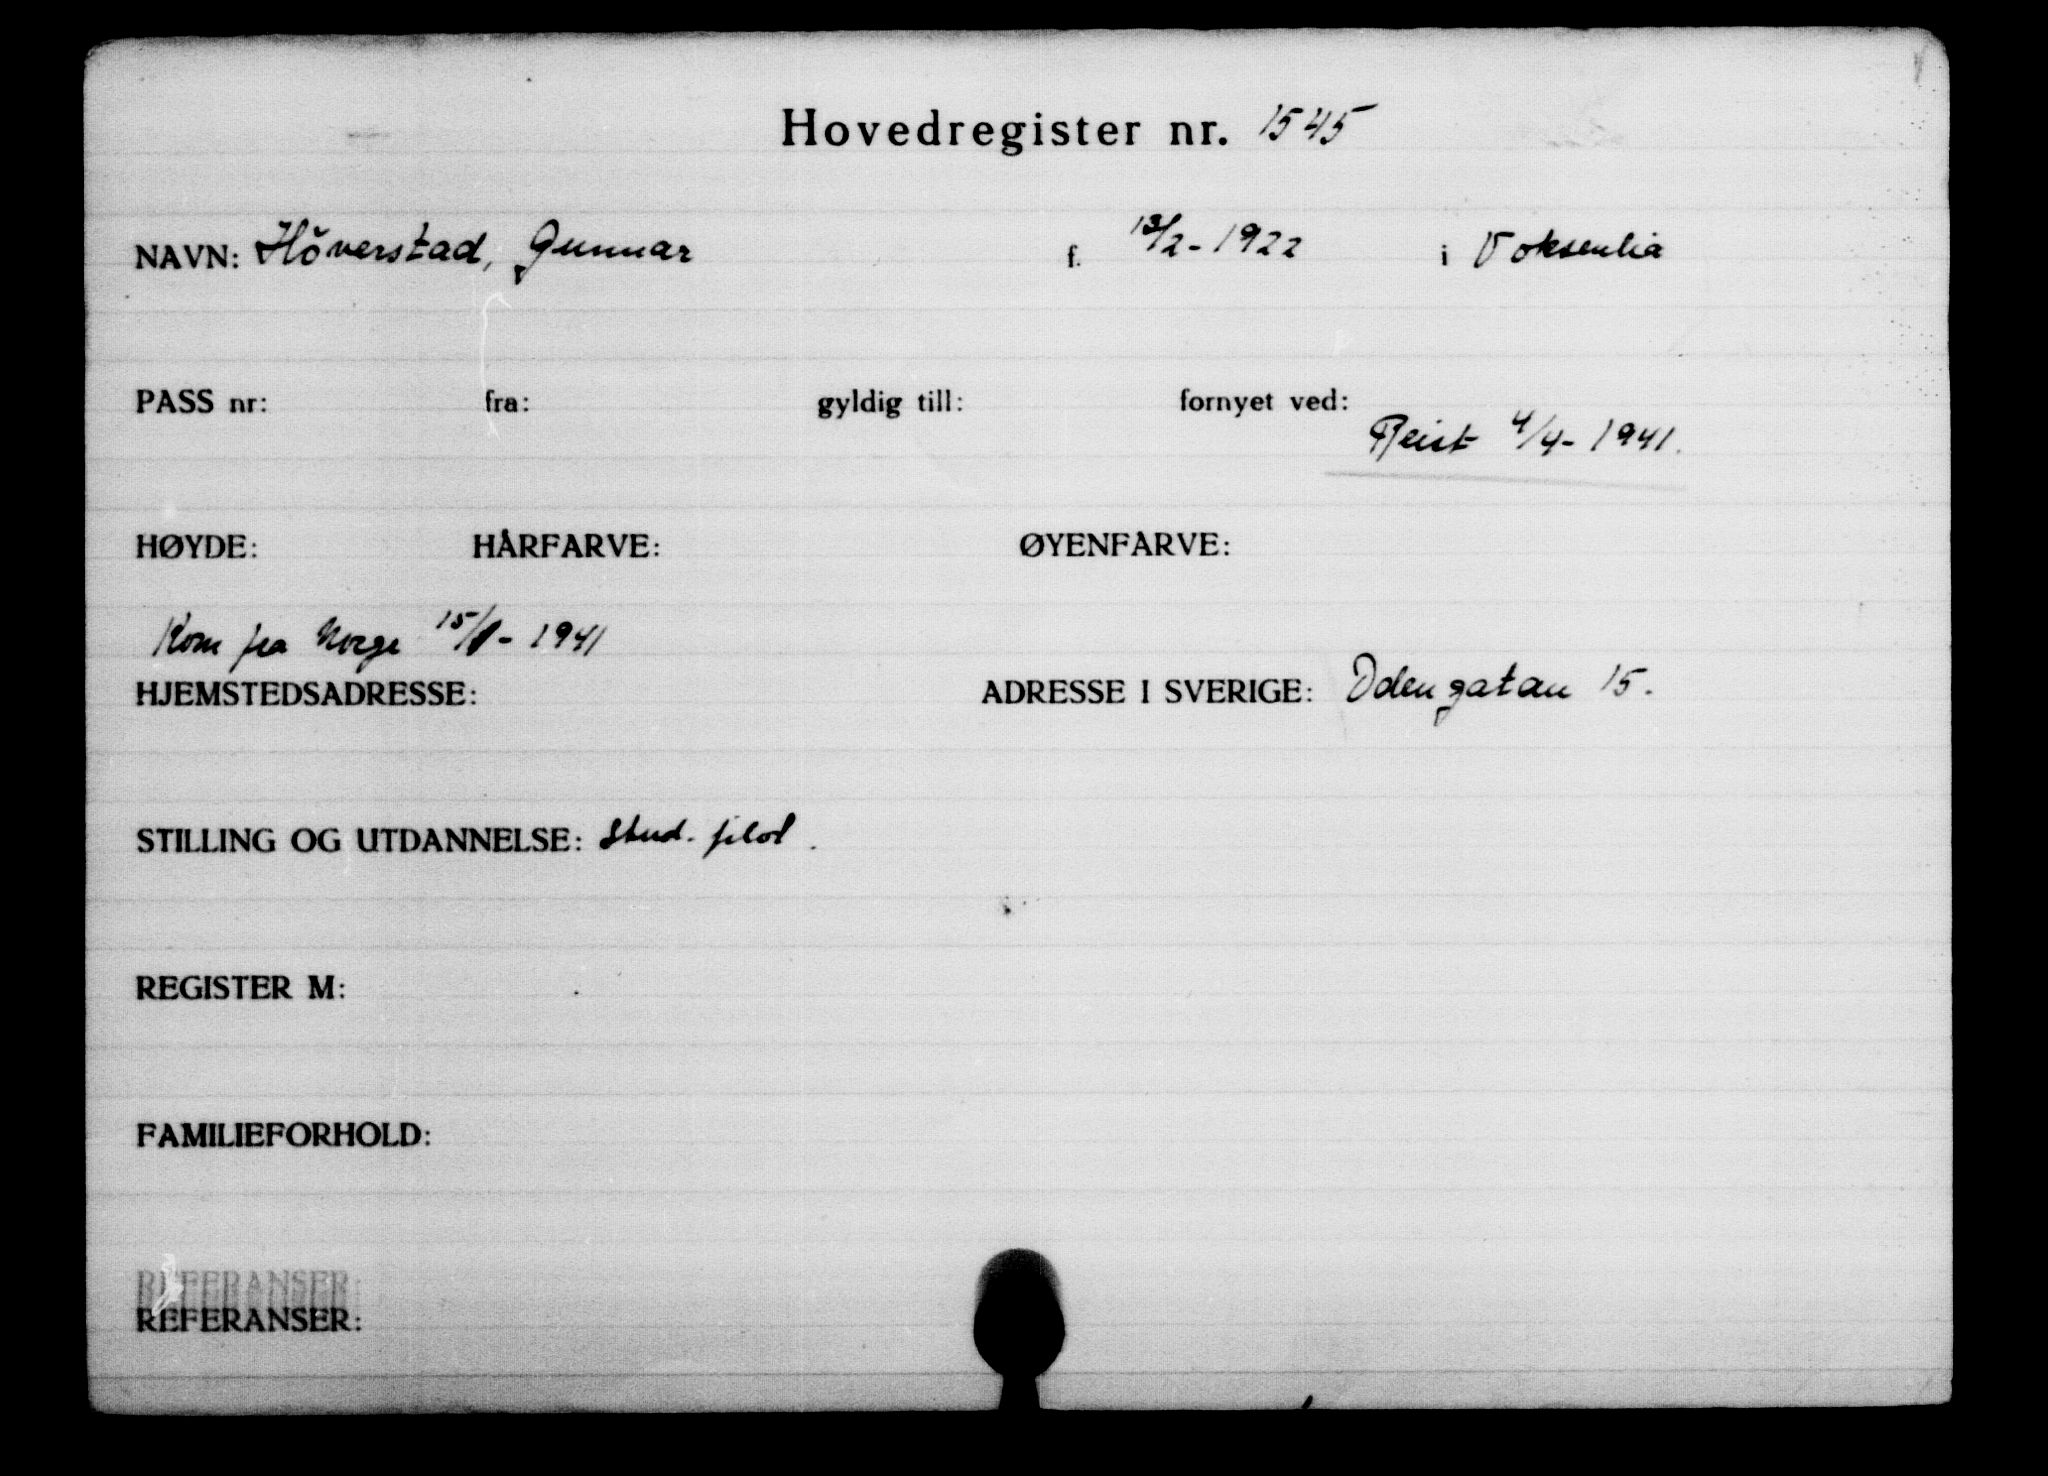 Hovedregister nr. 1545
NAVN: Höverstad, Gunnar f. 13/2-1922 i Voksenlia
PASS nr: fra: gyldig till: fornyet ved:
Reist 4/4-1941.
HØYDE: HÅRFARVE: ØYENFARVE:
Kom fra Norge 15/1-1941
HJEMSTEDSADRESSE: ADRESSE I SVERIGE: Odengatan 15.
STILLING OG UTDANNELSE: Stud. filol.
REGISTER M:
FAMILIEFORHOLD:
REFERANSER:
REFERANSER: